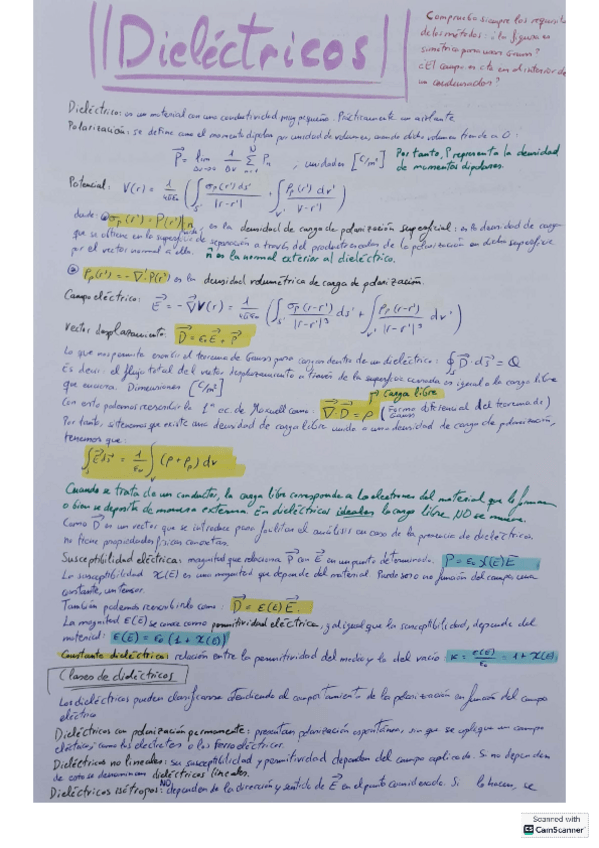 Dieléctricos
Comprueba siempre los requisitos
de los métodos: ¿la figura es
simétrica para usar Gauss?
¿El campo es cte en el interior de
un condensador?
Dieléctrico: es un material con una conductividad muy pequeña. Prácticamente un aislante
Polarización: se define como el momento dipolar por unidad de volumen, cuando dicho volumen tiende a 0:
P⃗ = lim Δv→0 1/Δv Σ Pn , unidades [C/m²] Por tanto, P representa la densidad
de momentos dipolares.
Potencial: V(r) = 1/4πε₀ (∫s' σp(r')ds'/|r-r'| + ∫v' ρp(r')dv'/|r-r'|)
donde: σp(r') = P(r')·n es la densidad de carga de polarización superficial: es la densidad de carga
que se obtiene en la superficie de separación a través del producto escalar de la polarización en dicha superficie
por el vector normal a ella. n̂ es la normal exterior al dieléctrico.
ρp(r') = -∇·P(r') es la densidad volumétrica de carga de polarización.
Campo eléctrico: E⃗ = -∇V(r) = 1/4πε₀ (∫s' σp(r-r')/|r-r'|³ ds' + ∫v' ρp(r-r')/|r-r'|³ dv')
Vector desplazamiento: D⃗ = ε₀E⃗ + P⃗
Lo que nos permite escribir el teorema de Gauss para cargas dentro de un dieléctrico: ∮s D⃗·ds⃗ = Q
Es decir: el flujo total del vector desplazamiento a través de la superficie cerrada es igual a la carga libre
que encierra. Dimensiones [C/m²]
carga libre
Con esto podemos reescribir la 1ª ec. de Maxwell como: ∇·D⃗ = ρ (forma diferencial del teorema de Gauss)
Por tanto, si tenemos que existe una densidad de carga libre unida a una densidad de carga de polarización,
tenemos que:
∫s E⃗ds⃗ = 1/ε₀ ∫v (ρ+ρp) dv
Cuando se trata de un conductor, la carga libre corresponde a los electrones del material que lo forman
o bien se deposita de manera externa. En dieléctricos ideales la carga libre NO se mueve.
Como D⃗ es un vector que se introduce para facilitar el análisis en caso de la presencia de dieléctricos
no tiene propiedades físicas concretas.
Susceptibilidad eléctrica: magnitud que relaciona P⃗ con E⃗ en un punto determinado. P = ε₀χ(E)E
La susceptibilidad χ(E) es una magnitud que depende del material. Puede ser o no función del campo, una
constante, un tensor.
También podemos reescribirlo como: D⃗ = ε(E)E⃗.
La magnitud ε(E) se conoce como permitividad eléctrica, y al igual que la susceptibilidad, depende del
material: ε(E) = ε₀(1 + χ(E))
Constante dieléctrica: relación entre la permitividad del medio y la del vacío: κ = ε(E)/ε₀ = 1 + χ(E)
Clases de dieléctricos
Los dieléctricos pueden clasificarse atendiendo al comportamiento de la polarización en función del campo
eléctrico
Dieléctricos con polarización permanente: presentan polarización espontánea, sin que se aplique un campo
eléctrico, como los electretes o los ferroeléctricos.
Dieléctricos no lineales: su susceptibilidad y permitividad dependen del campo aplicado. Si no dependen
de esto se denominan dieléctricos lineales.
Dieléctricos isótropos: NO dependen de la dirección y sentido de E⃗ en el punto considerado. Si lo hacen, se
Scanned with
CamScanner